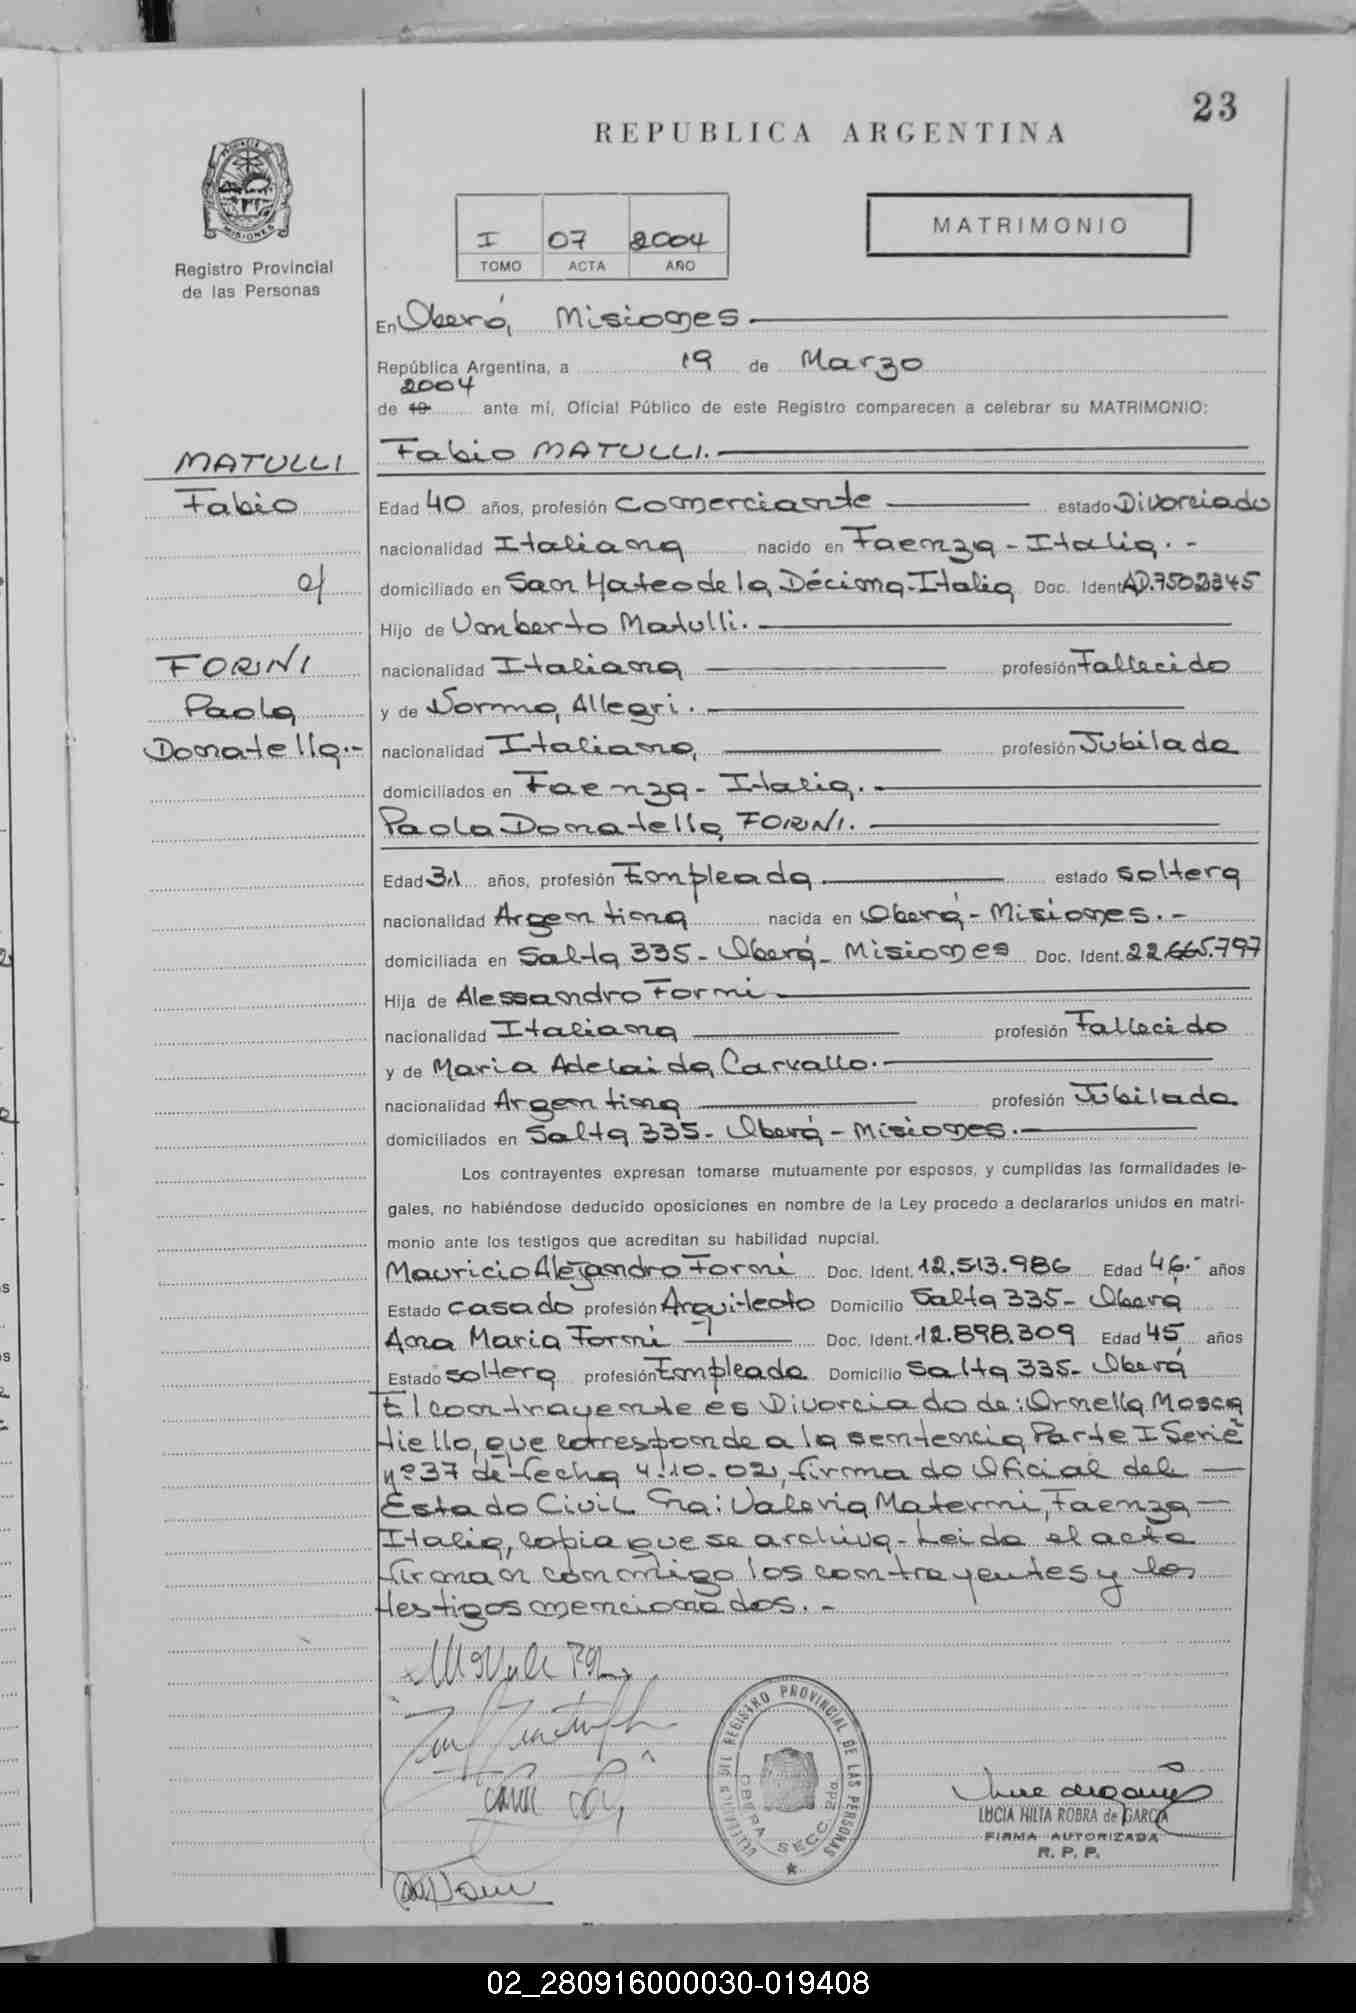 23
REPUBLICA ARGENTINA
PROVINCIA DE MISIONES
Registro Provincial
de las Personas
I 07 2004
TOMO ACTA AÑO
MATRIMONIO
En Oberá, Misiones
República Argentina, a 19 de Marzo
2004
de 19 ante mí, Oficial Público de este Registro comparecen a celebrar su MATRIMONIO:
MATULLI
Fabio
c/
FORINI
Paola
Donatella.-
Fabio MATULLI.
Edad 40 años, profesión Comerciante estado Divorciado
nacionalidad Italiana nacido en Faenza - Italia.-
domiciliado en San Mateo de la Décima-Italia Doc. Ident. AD.7502345
Hijo de Umberto Matulli.
nacionalidad Italiana profesión Fallecido
y de Norma Allegri.
nacionalidad Italiana, profesión Jubilada
domiciliados en Faenza - Italia.
Paola Donatella FORINI.
Edad 31 años, profesión Empleada estado soltera
nacionalidad Argentina nacida en Oberá - Misiones.-
domiciliada en Salta 335- Oberá- Misiones Doc. Ident. 22.665.797
Hija de Alessandro Forni
nacionalidad Italiana profesión Fallecido
y de Maria Adelaida Carvallo.
nacionalidad Argentina profesión Jubilada
domiciliados en Salta 335- Oberá - Misiones.
Los contrayentes expresan tomarse mutuamente por esposos, y cumplidas las formalidades le-
gales, no habiéndose deducido oposiciones en nombre de la Ley procedo a declararlos unidos en matri-
monio ante los testigos que acreditan su habilidad nupcial.
Mauricio Alejandro Forni Doc. Ident. 12.513.986 Edad 46.- años
Estado casado profesión Arquitecto Domicilio Salta 335- Oberá
Ana Maria Forni Doc. Ident. 12.898.309 Edad 45 años
Estado soltera profesión Empleada Domicilio Salta 335- Oberá
El contrayente es Divorciado de: Ornella Mosca
tiello, que corresponde a la sentencia Parte I Serie
nº 37 de fecha 4.10.02, firmado Oficial del
Estado Civil Sra: Valeria Materni, Faenza
Italia, copia que se archiva- Leida el acta
firman conmigo los contrayentes y los
testigos mencionados.-
DEL REGISTRO PROVINCIAL DE LAS PERSONAS
OBERA SECC. 2da.
LUCIA HILIA ROBRA de GARCIA
FIRMA AUTORIZADA
R. P. P.
02_280916000030-019408